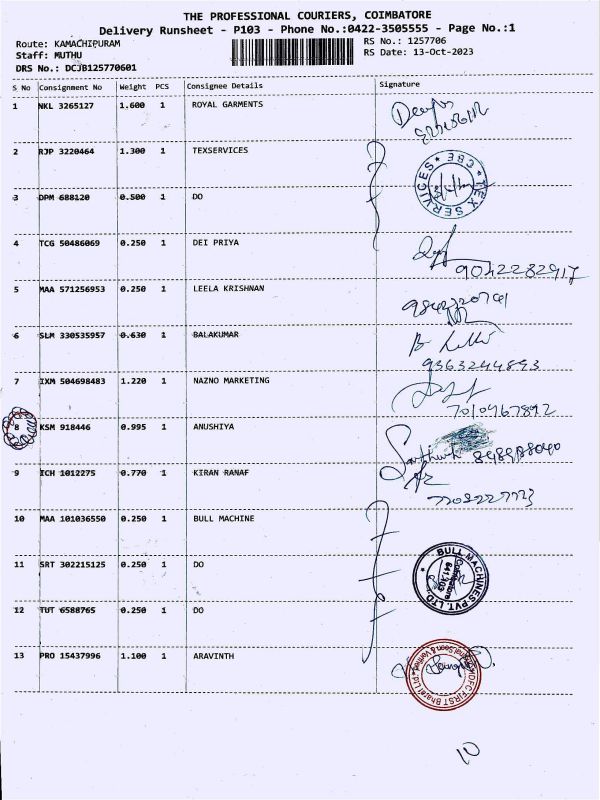 THE PROFESSIONAL COURIERS, COIMBATORE
Delivery Runsheet - P103 - Phone No.:0422-3505555 - Page No.:1
Route: KAMACHIPURAM RS No.: 1257706
Staff: MUTHU RS Date: 13-Oct-2023
DRS No.: DCJB125770601
S No Consignment No Weight PCS Consignee Details Signature
1 NKL 3265127 1.600 1 ROYAL GARMENTS
2 RJP 3220464 1.300 1 TEXSERVICES
TEX SERVICES * CBE *
3 DPM 688120 0.500 1 DO
4 TCG 50486069 0.250 1 DEI PRIYA
9042282917
5 MAA 571256953 0.250 1 LEELA KRISHNAN
6 SLM 330535957 0.630 1 BALAKUMAR
9363244893
7 IXM 504698483 1.220 1 NAZNO MARKETING
7010467892
8 KSM 918446 0.995 1 ANUSHIYA
9 ICH 1012275 0.770 1 KIRAN RANAF
10 MAA 101036550 0.250 1 BULL MACHINE
11 SRT 302215125 0.250 1 DO
BULL MACHINES PVT. LTD
Coimbatore
641 103
12 TUT 6588765 0.250 1 DO
13 PRO 15437996 1.100 1 ARAVINTH
10